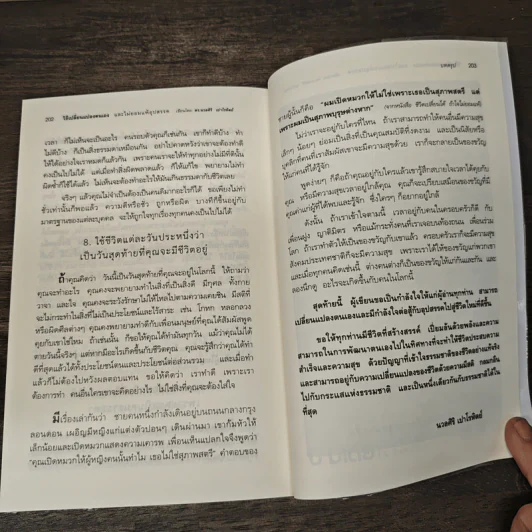 202 วิธีเปลี่ยนแปลงตนเอง และไม่ยอมแพ้อุปสรรค
เวลา ก็ไม่เห็นจะเป็นอะไร คนรอบตัวคุณก็เช่นกัน เขาก็ทำดีบ้าง ทำ
ไม่ดีบ้าง ก็เป็นสิ่งธรรมดาเหมือนกัน อย่าไปคาดหวังว่าเขาจะต้องทำ
ให้ได้อย่างใจเราหมดก็แล้วกัน เพราะคนเราจะให้ทำทุกอย่างไม่มีที่ตินั้น
คงเป็นไปไม่ได้ ถ้าคุณทำสิ่งผิดพลาดแล้ว ก็ให้แก้ไข พยายามไม่ทำ
ผิดซ้ำก็ใช้ได้แล้ว ไม่เห็นจะต้องทำอะไรให้มันเกินธรรมดากับชีวิตเลย
จริงๆ แล้วคุณไม่จำเป็นต้องเป็นคนดีมากอะไรก็ได้ ขอเพียงไม่ทำ
ชั่วเท่านั้นก็พอแล้ว ความดีหรือชั่ว ถูกหรือผิด บางทีก็ขึ้นอยู่กับ
มาตรฐานของแต่ละบุคคล จะให้ถูกใจทุกเรื่องทุกคนคงเป็นไปไม่ได้
8. ใช้ชีวิตแต่ละวันประหนึ่งว่า
เป็นวันสุดท้ายที่คุณจะมีชีวิตอยู่
ถ้าคุณคิดว่า วันนี้เป็นวันสุดท้ายที่คุณจะอยู่ในโลกนี้ ให้ถามว่า
คุณจะทำอะไร คุณคงจะพยายามทำแต่สิ่งที่เป็นสิ่งดี มีกุศล ทั้งกาย
วาจา และใจ คุณคงจะระวังรักษาไม่ให้ไหลไปตามความเคยชิน มีสติที่
จะไม่กระทำในสิ่งที่ไม่เป็นประโยชน์และไร้สาระ เช่น โกหก หลอกลวง
หรือผิดศีลต่างๆ คุณคงพยายามทำดีกับเพื่อนมนุษย์ที่คุณได้สัมผัสพูด
คุยกับเขาใช่ไหม ถ้าเช่นนั้น ก็ขอให้คุณได้ทำมันทุกวัน แม้ว่าคุณไม่ได้
ตายวันนี้จริงๆ แต่หากมีอะไรเกิดขึ้นกับชีวิตคุณ คุณจะรู้สึกว่าคุณได้ทำ
ดีที่สุดแล้วได้ทั้งประโยชน์ตนและประโยชน์ต่อส่วนรวม และเมื่อทำ
แล้วก็ไม่ต้องไปหวังผลตอบแทน ขอให้คิดว่า เราทำดี เพราะเรา
ต้องการทำ คนอื่นใครเขาจะคิดอย่างไร ไม่ใช่สิ่งที่คุณจะต้องใส่ใจ
มีเรื่องเล่ากันว่า ชายคนหนึ่งกำลังเดินอยู่บนถนนกลางกรุง
ลอนดอน เผอิญมีหญิงแก่แต่งตัวปอนๆ เดินผ่านมา เขาก้มหัวให้
เล็กน้อยและเปิดหมวกแสดงความเคารพ เพื่อนเห็นแปลกใจจึงพูดว่า
“คุณเปิดหมวกให้ผู้หญิงคนนั้นทำไม เธอไม่ใช่สุภาพสตรี” คำตอบของ
บทสรุป 203
ชายผู้นั้นก็คือ “ผมเปิดหมวกให้ไม่ใช่เพราะเธอเป็นสุภาพสตรี แต่
เพราะผมเป็นสุภาพบุรุษต่างหาก”
ไม่ว่าเราจะอยู่กับใครที่ไหน ถ้าเราสามารถทำให้คนอื่นมีความสุข
เล็กๆ น้อยๆ ย่อมเป็นสิ่งที่เป็นคุณสมบัติที่งดงาม และเป็นนิสัยหรือ
บุคลิกที่คนที่เราสัมผัสเขาจะมีความสุขด้วย เราก็จะกลายเป็นของขวัญ
ให้แก่คนที่ได้รู้จัก
พูดง่ายๆ ก็คือถ้าคุณอยู่กับใครแล้วเขารู้สึกสบายใจเวลาได้คุยกับ
คุณ หรือมีความสุขเวลาอยู่ใกล้คุณ คุณก็จะเปรียบเสมือนของขวัญที่มี
คุณค่าแก่ผู้ที่ได้พบและรู้จัก ซึ่งใครๆ ก็อยากอยู่ใกล้
ดังนั้น ถ้าเราเข้าใจตามนี้ เวลาอยู่กับคนในครอบครัวก็ดี กับ
เพื่อนฝูง ญาติมิตร หรือแม้กระทั่งคนที่เราเจอบนท้องถนน เพื่อนร่วม
โลก ถ้าเราทำตัวให้เป็นของขวัญกับเขาแล้ว ครอบครัวตลอดจนคนใน
สังคมประเทศชาติก็จะมีความสุข เพราะเราได้ให้ของขวัญแก่พวกเขา
และเมื่อทุกคนคิดเช่นนี้ ต่างคนต่างก็เป็นของขวัญให้แก่กันและกัน และ
ลองนึกดู อะไรจะเกิดขึ้นกับคนในโลกนี้
สุดท้ายนี้ ผู้เขียนขอเป็นกำลังใจให้แก่ผู้อ่านทุกท่าน สามารถ
เปลี่ยนแปลงตนเองและมีกำลังใจต่อสู้กับอุปสรรคไปสู่ชีวิตใหม่ที่ดีขึ้น
ขอให้ทุกท่านมีชีวิตที่สร้างสรรค์ เปี่ยมล้นด้วยพลังและความ
สามารถในการพัฒนาตนเองไปในทิศทางที่จะทำให้ชีวิตประสบความ
สำเร็จและความสุข ด้วยปัญญาที่เข้าใจสัจธรรมของชีวิตอย่างแท้จริง
และสามารถอยู่กับความเปลี่ยนแปลงของชีวิตด้วยความมีสติ กลมกลืน
ไปกับกระแสแห่งธรรมชาติ และเป็นหนึ่งเดียวกันกับธรรมชาติได้ใน
ที่สุด
นวลศิริ เปาโรหิตย์